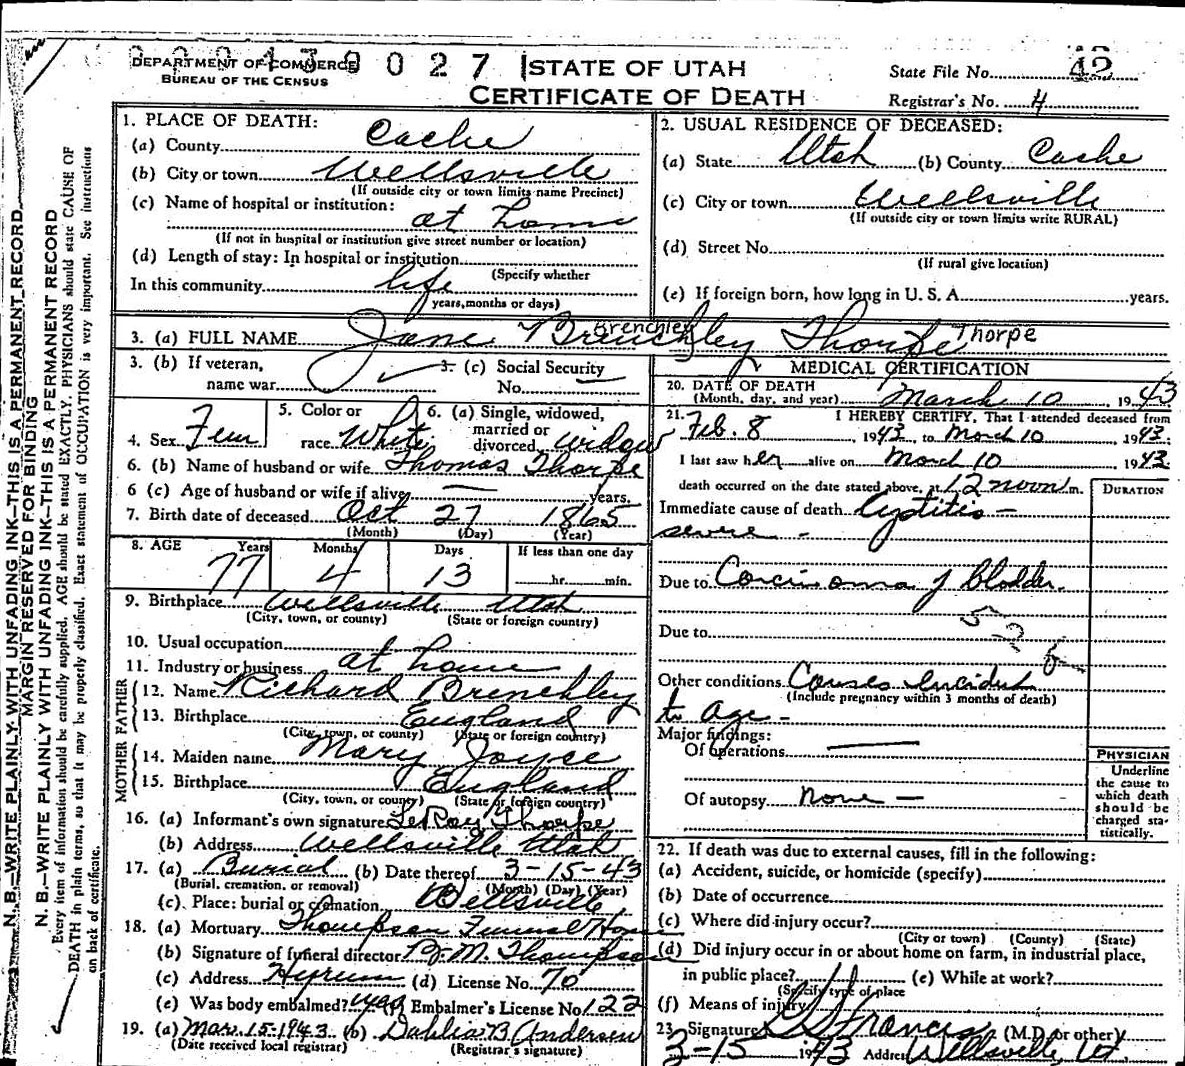 DEPARTMENT OF COMMERCE
BUREAU OF THE CENSUS
0027
STATE OF UTAH
CERTIFICATE OF DEATH
State File No. 42
Registrar's No. 4
N. B.—WRITE PLAINLY WITH UNFADING INK—THIS IS A PERMANENT RECORD
MARGIN RESERVED FOR BINDING
N. B.—WRITE PLAINLY WITH UNFADING INK—THIS IS A PERMANENT RECORD
Every item of information should be carefully supplied. AGE should be stated EXACTLY. PHYSICIANS should state CAUSE OF
DEATH in plain terms, so that it may be properly classified. Exact statement of OCCUPATION is very important. See instructions
on back of certificate.
1. PLACE OF DEATH:
(a) County Cache
(b) City or town Wellsville
(If outside city or town limits name Precinct)
(c) Name of hospital or institution:
at home
(If not in hospital or institution give street number or location)
(d) Length of stay: In hospital or institution
(Specify whether
In this community life
years, months or days)
2. USUAL RESIDENCE OF DECEASED:
(a) State Utah (b) County Cache
(c) City or town Wellsville
(If outside city or town limits write RURAL)
(d) Street No.
(If rural give location)
(e) If foreign born, how long in U. S. A. years.
3. (a) FULL NAME Jane Brenchley Thorpe
Brenchley Thorpe
3. (b) If veteran,
name war
3. (c) Social Security
No. —
4. Sex Fem
5. Color or
race White
6. (a) Single, widowed,
married or
divorced widow
6. (b) Name of husband or wife Thomas Thorpe
6 (c) Age of husband or wife if alive — years.
7. Birth date of deceased Oct 27 1865
(Month) (Day) (Year)
8. AGE Years Months Days If less than one day
77 4 13 hr. min.
9. Birthplace Wellsville Utah
(City, town, or county) (State or foreign country)
10. Usual occupation
11. Industry or business at home
FATHER
12. Name Richard Brenchley
13. Birthplace England
(City, town, or county) (State or foreign country)
MOTHER
14. Maiden name Mary Joyce
15. Birthplace England
(City, town, or county) (State or foreign country)
16. (a) Informant's own signature LeRoy Thorpe
(b) Address Wellsville Utah
17. (a) Burial (b) Date thereof 3-15-43
(Burial, cremation, or removal) (Month) (Day) (Year)
(c). Place: burial or cremation Wellsville
18. (a) Mortuary Thompson Funeral Home
(b) Signature of funeral director B. M. Thompson
(c) Address Hyrum (d) License No. 70
(e) Was body embalmed? yes (f) Embalmer's License No. 122
19. (a) Mar. 15-1943 (b) Dahlia B. Andersen
(Date received local registrar) (Registrar's signature)
MEDICAL CERTIFICATION
20. DATE OF DEATH
(Month, day, and year) March 10, 1943
21. I HEREBY CERTIFY, That I attended deceased from
Feb. 8, 1943, to March 10, 1943.
I last saw her alive on March 10 1943
death occurred on the date stated above, at 12 noon m.
DURATION
Immediate cause of death Cystitis —
severe —
Due to Carcinoma of bladder.
Due to
52
Other conditions Causes incident
(Include pregnancy within 3 months of death)
to age —
Major findings:
Of operations —
Of autopsy none —
PHYSICIAN
Underline
the cause to
which death
should be
charged sta-
tistically.
22. If death was due to external causes, fill in the following:
(a) Accident, suicide, or homicide (specify)
(b) Date of occurrence
(c) Where did injury occur?
(City or town) (County) (State)
(d) Did injury occur in or about home on farm, in industrial place,
in public place? (e) While at work?
(Specify type of place
(f) Means of injury
23. Signature Francis (M.D. or other)
3-15 1943 Address Wellsville, Ut.